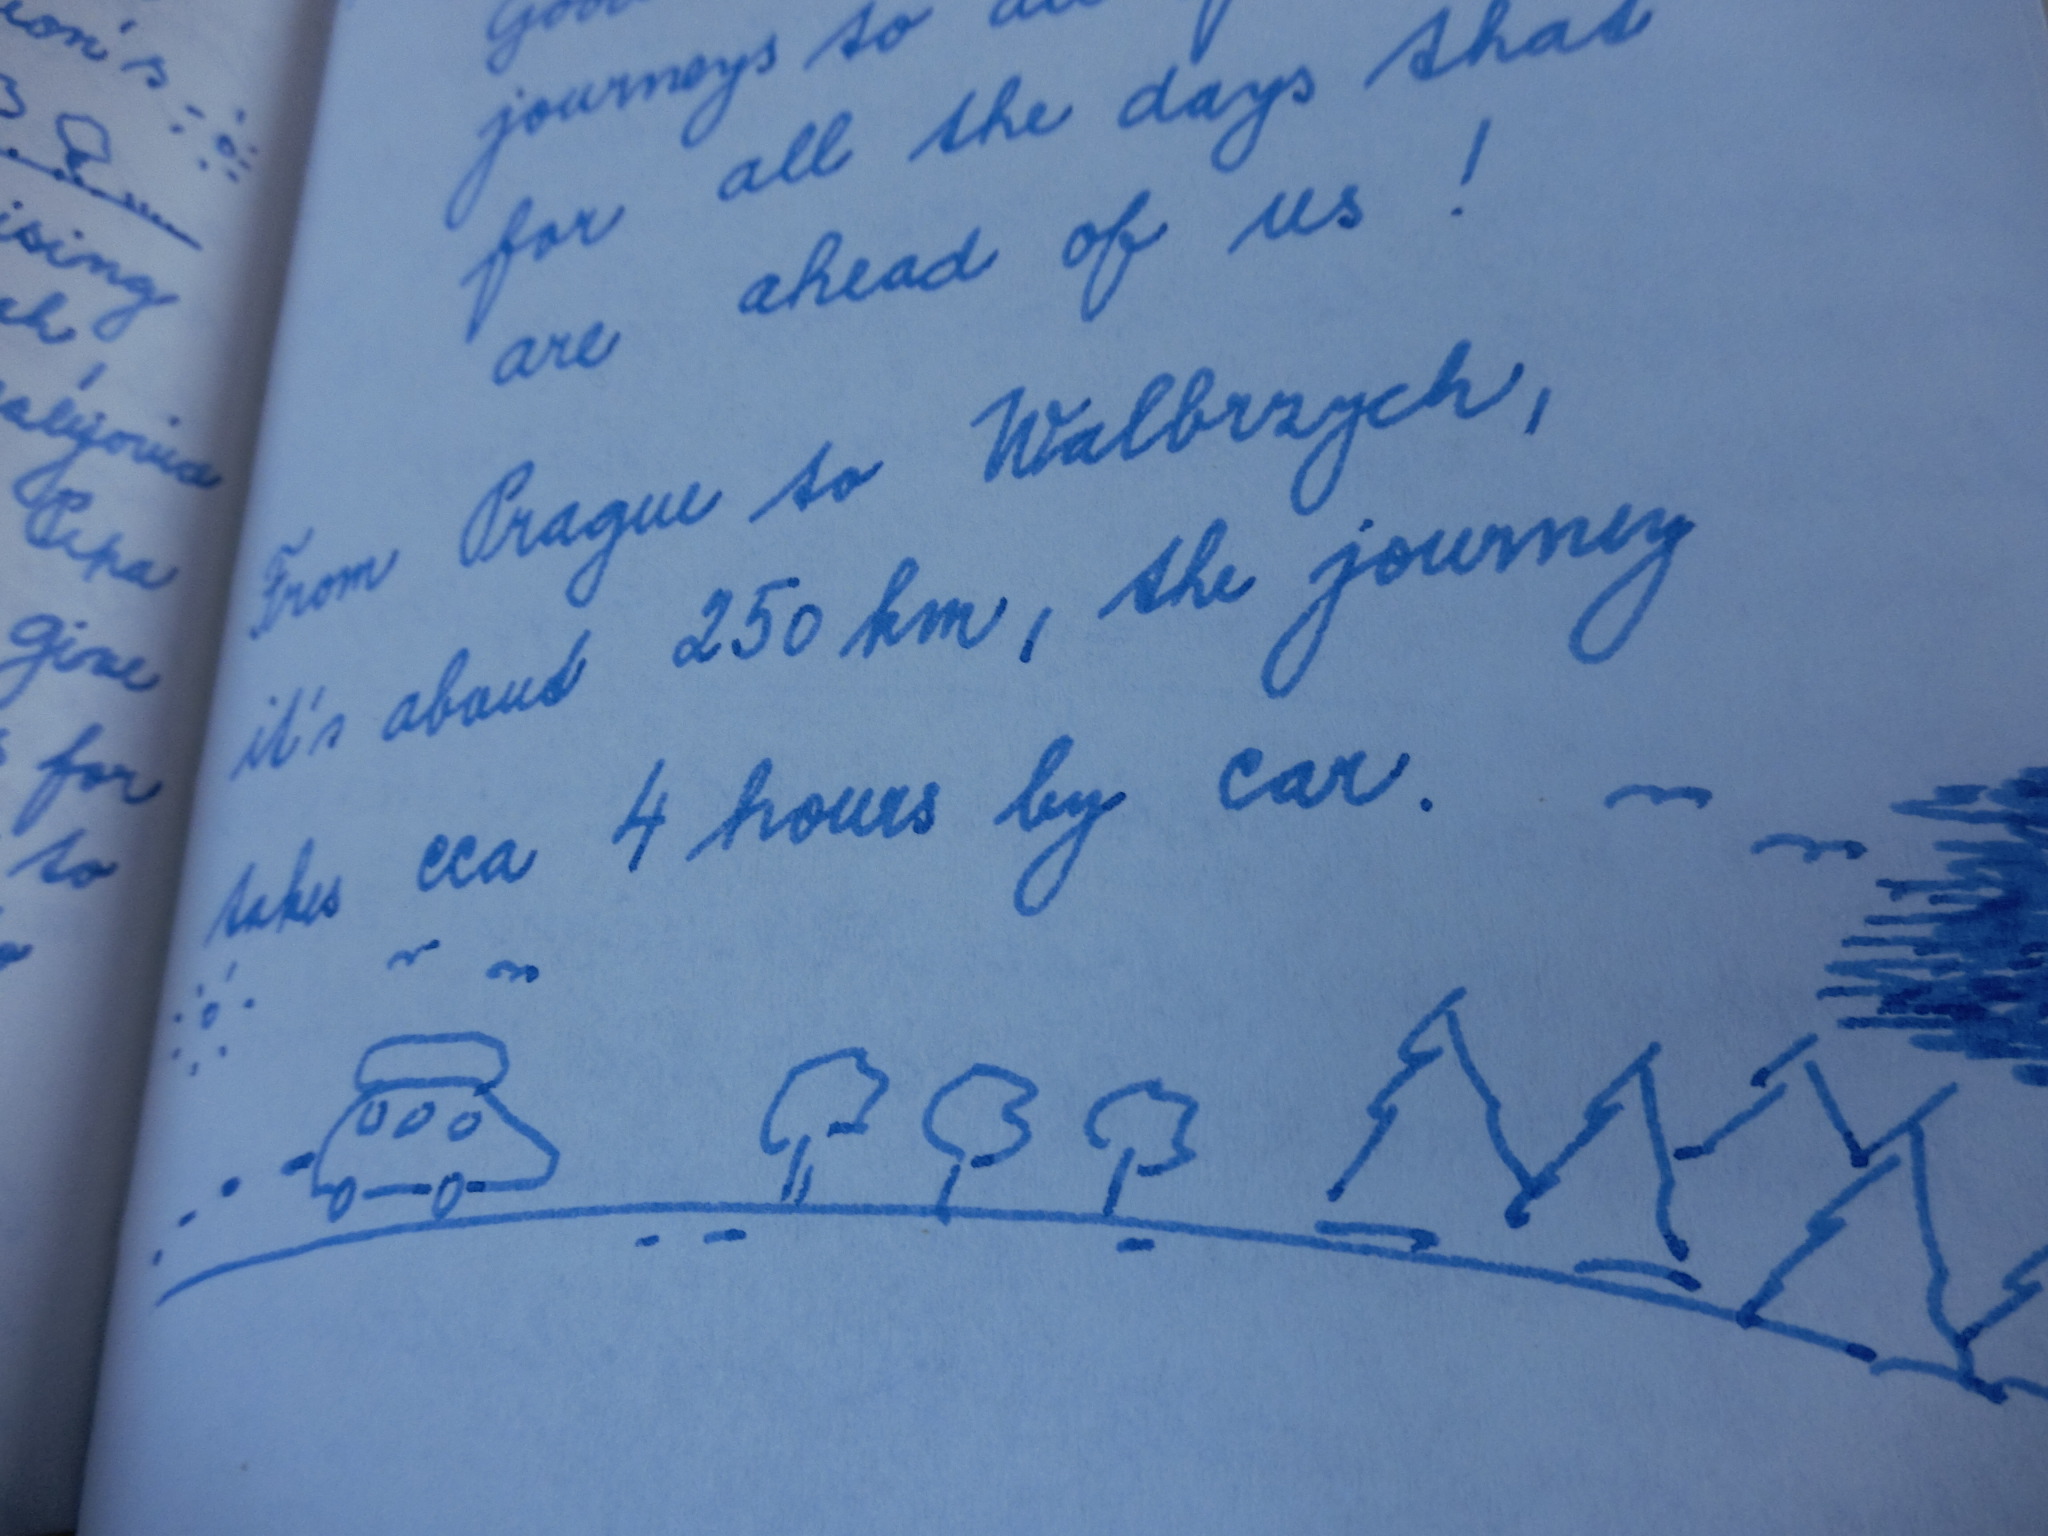 ion's
ising
Pepa
give
for
to
Good
journeys to all
for all the days that
are ahead of us !
From Prague to Walbrzych,
it's about 250 km, the journey
takes cca 4 hours by car.